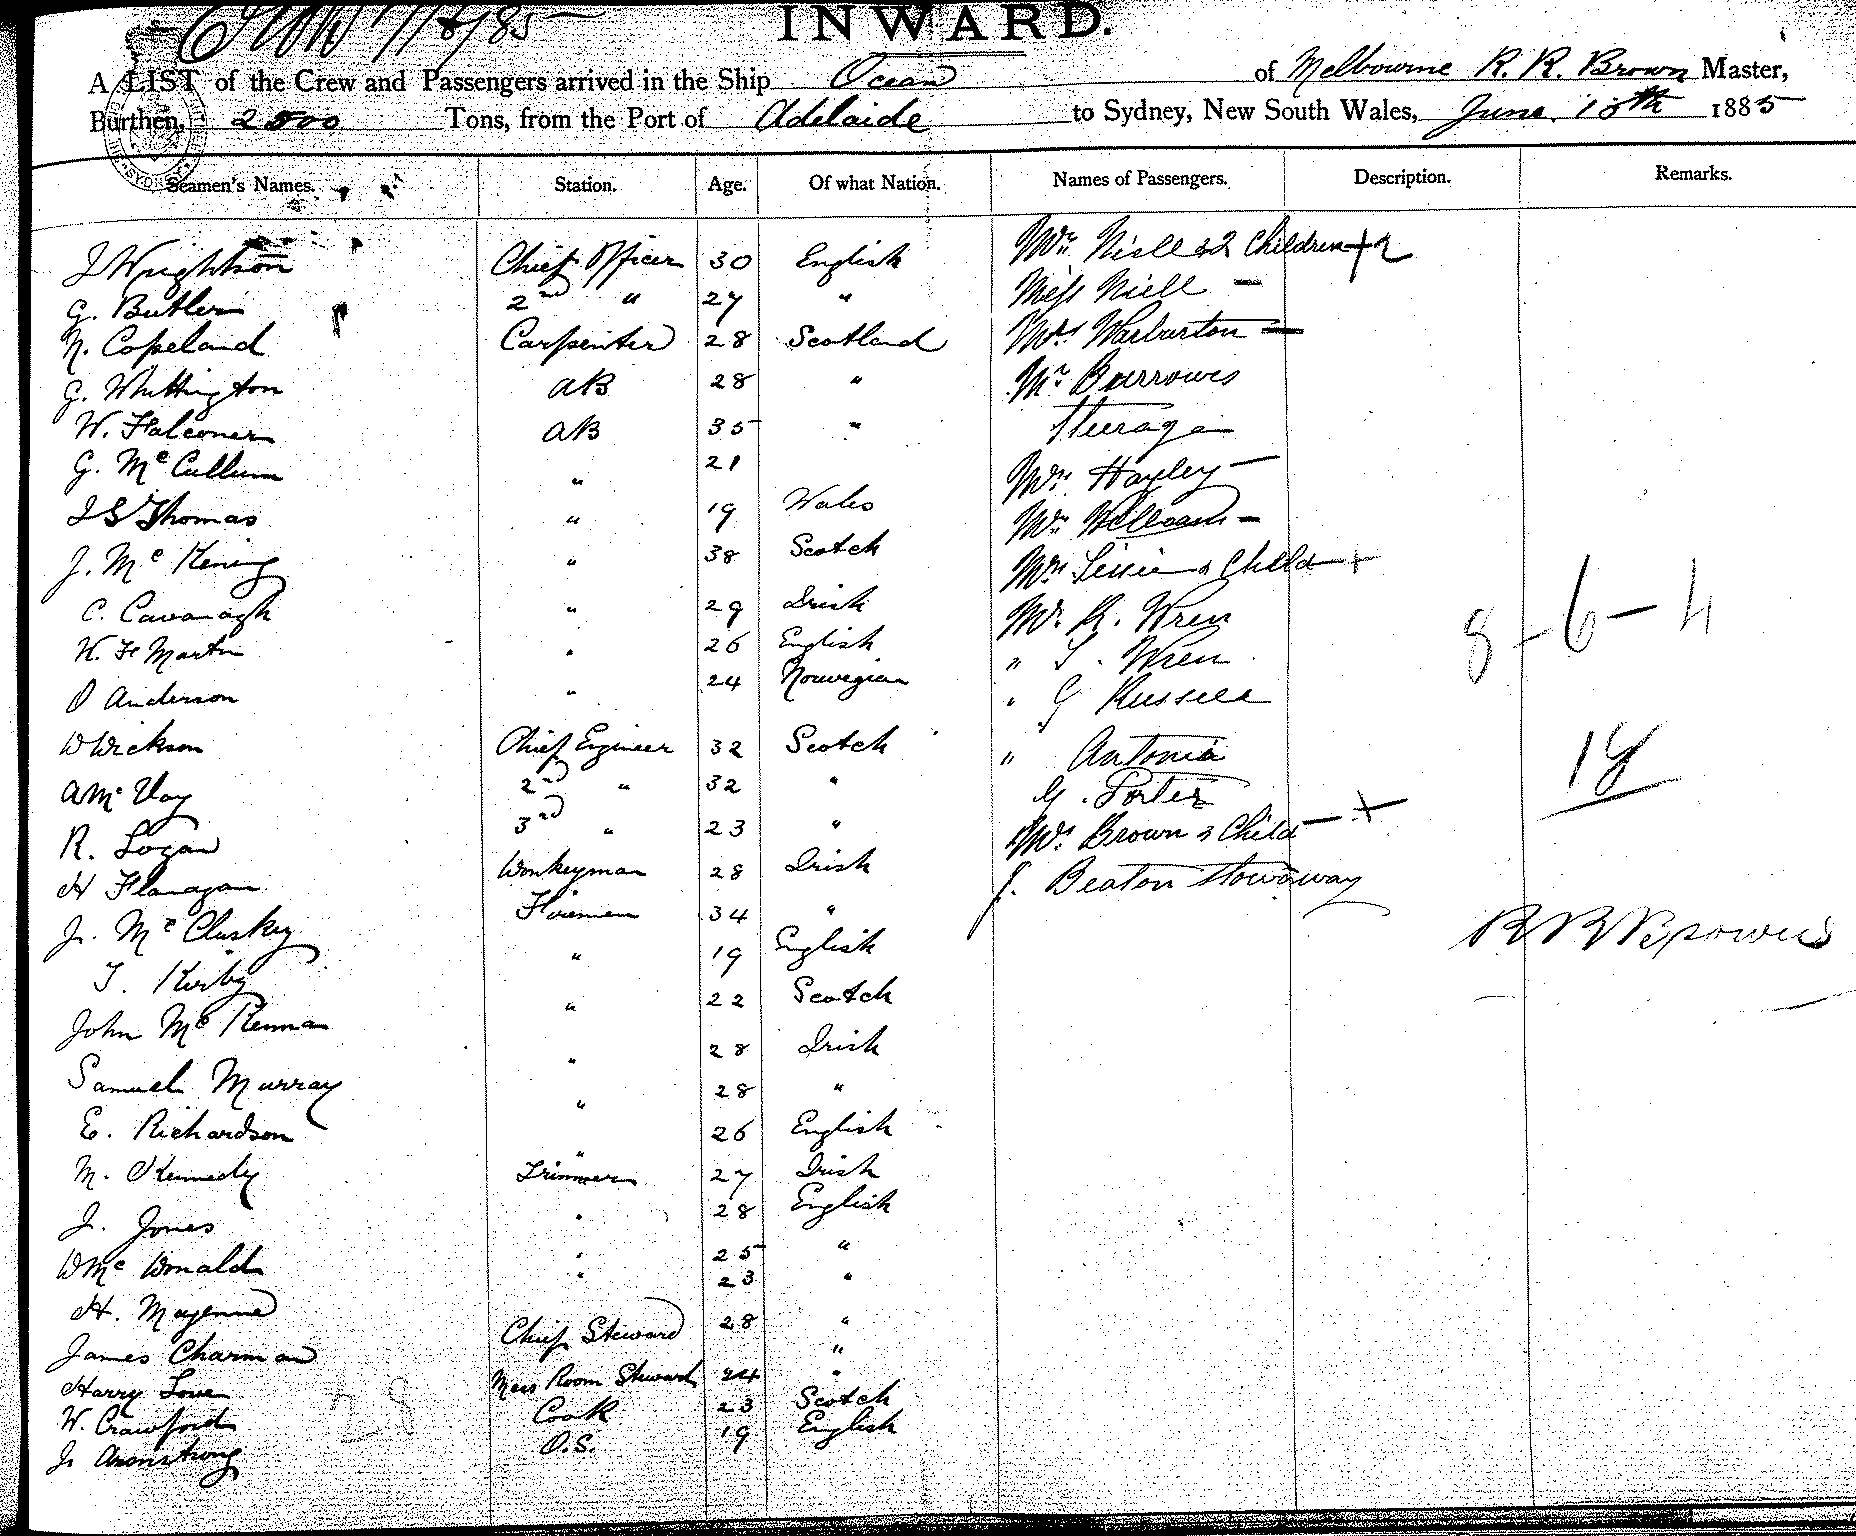 INWARD.
A LIST of the Crew and Passengers arrived in the Ship Ocean of Melbourne R. R. Brown Master,
Burthen, 2500 Tons, from the Port of Adelaide to Sydney, New South Wales, June 18th 1885
Seamen's Names. Station. Age. Of what Nation. Names of Passengers. Description. Remarks.
J Wrightson Chief Officer 30 English Mrs Niell & 2 Children + 2
G. Butler 2nd " 27 " Miss Niell —
N. Copeland Carpenter 28 Scotland Mrs Warburton —
G. Whittington AB 28 " Mr Burrowes
W. Falconer AB 35 " Steerage
G. McCullum " 21 Mrs Hayley —
J S Thomas " 19 Wales Mrs William —
J. Mc " 38 Scotch Mrs & Child — +
C. Cavanagh " 29 Irish Mr. R. Wren
W. F Martin " 26 English " T. Wren
O Anderson " 24 Norwegian " G Russell
8 - 6 - 4
W Wickson Chief Engineer 32 Scotch " Antonia
18
A Mc Vay 2nd " 32 " G. Porter
R. Logan 3rd " 23 " Mrs Brown & Child — +
H Flanagan Donkeyman 28 Irish J. Beaton Stowaway
J. Mc Cluskey Firemen 34 "
R R Brown
T. Kirby " 19 English
John Mc " 22 Scotch
Samuel Murray " 28 Irish
E. Richardson " 28 "
M. Kennedy " 26 English
J. Jones Trimmer 27 Irish
W Mc Donald " 28 English
H. " 25 "
James Charman " 23 "
Harry Lowe Chief Steward 28 "
W. Crawford Mess Room Steward 24 "
J. Armstrong Cook 23 Scotch
O.S. 19 English
28